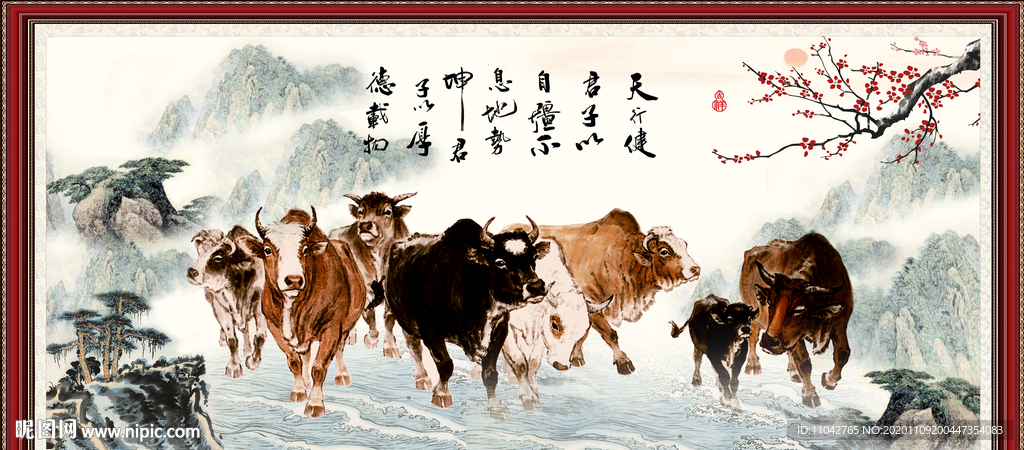 天行健
君子以
自彊不
息地勢
坤君
子以厚
德載物
昵图网 www.nipic.com
ID:11042765 NO:20201109200447354083